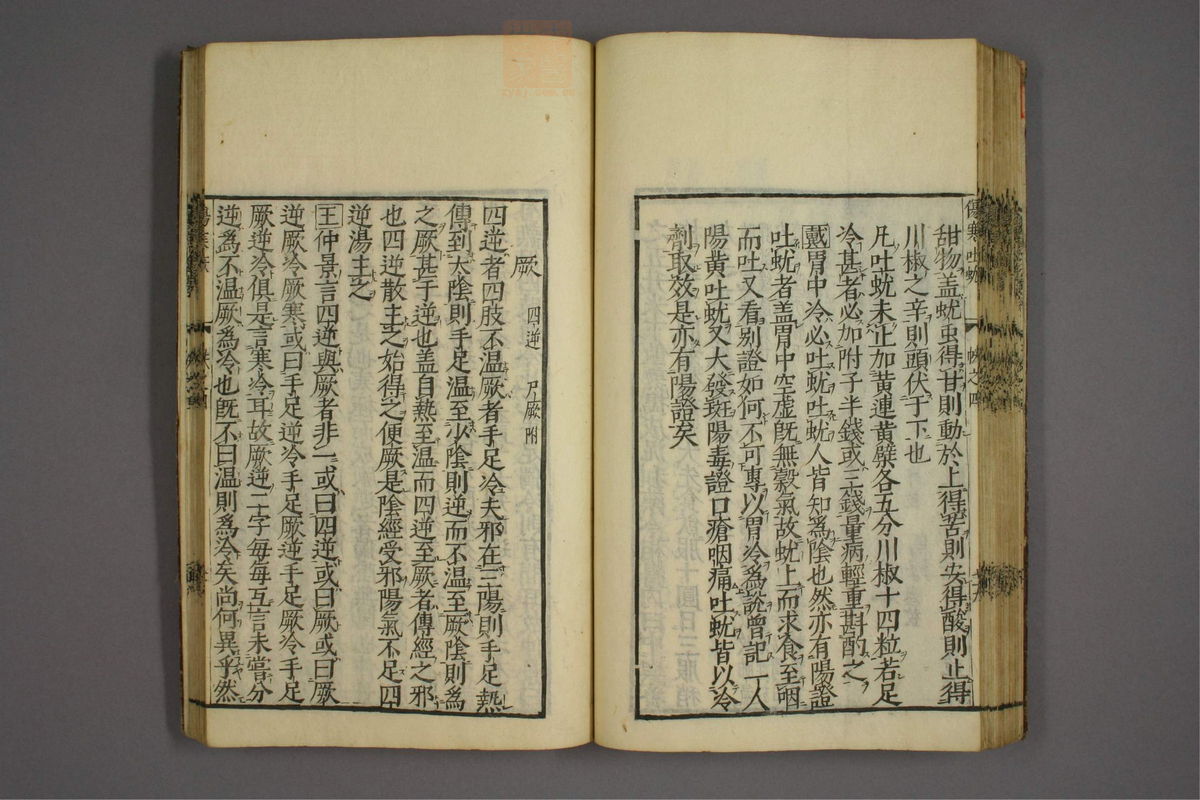 甜物盖蚘虫得甘則動於上得苦則安得酸則止得
川椒之辛則頭伏于下也
凡吐蚘未止加黄連黄蘗各五分川椒十四粒若足
冷甚者必加附子半錢或三錢量病輕重斟酌之
戴胃中冷必吐蚘吐蚘人皆知爲陰也然亦有陽證
吐蚘者盖胃中空虚既無穀氣故蚘上而求食至咽
而吐又看别證如何不可專以胃冷爲說曾記一人
陽黄吐蚘又大發斑陽毒證口瘡咽痛吐蚘皆以冷
劑取效是亦有陽證矣
傷寒吐蚘
帙之四
厥 四逆 尸厥附
四逆者四肢不温厥者手足冷夫邪在三陽則手足熱
傳到太陰則手足温至少陰則逆而不温至厥陰則爲
之厥甚于逆也盖自熱至温而四逆至厥者傳經之邪
也四逆散主之始得之便厥是陰經受邪陽氣不足四
逆湯主之
王仲景言四逆與厥者非一或曰四逆或曰厥或曰厥
逆厥冷厥寒或曰手足逆冷手足厥逆手足厥冷手足
厥逆冷俱是言寒冷耳故厥逆二字每每互言未嘗分
逆爲不温厥爲冷也既不曰温則爲冷矣尚何異乎然